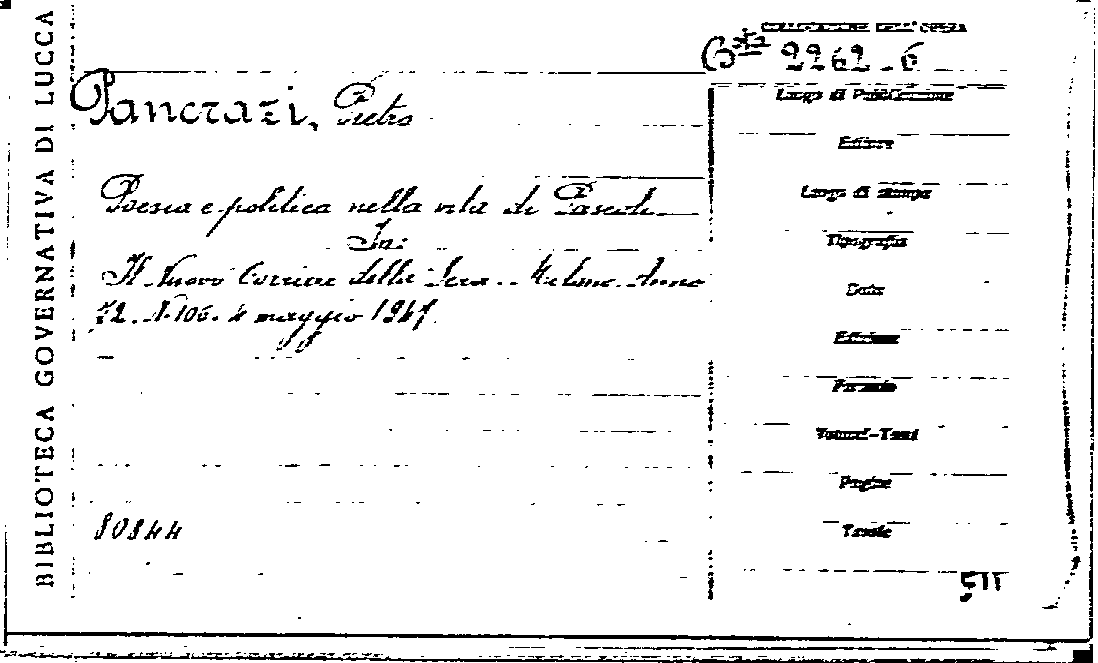 BIBLIOTECA GOVERNATIVA DI LUCCA
COLLOCAZIONE DELL'OPERA
B.ta 2262-6
Pancrazi, Pietro
Poesia e politica nella vita di Pascoli
In:
Il Nuovo Corriere della Sera. Milano. Anno
72. N. 106. 4 maggio 1947.
80844
Luogo di Pubblicazione
Editore
Luogo di stampa
Tipografia
Data
Edizione
Formato
Volumi-Tomi
Pagine
Tavole
511